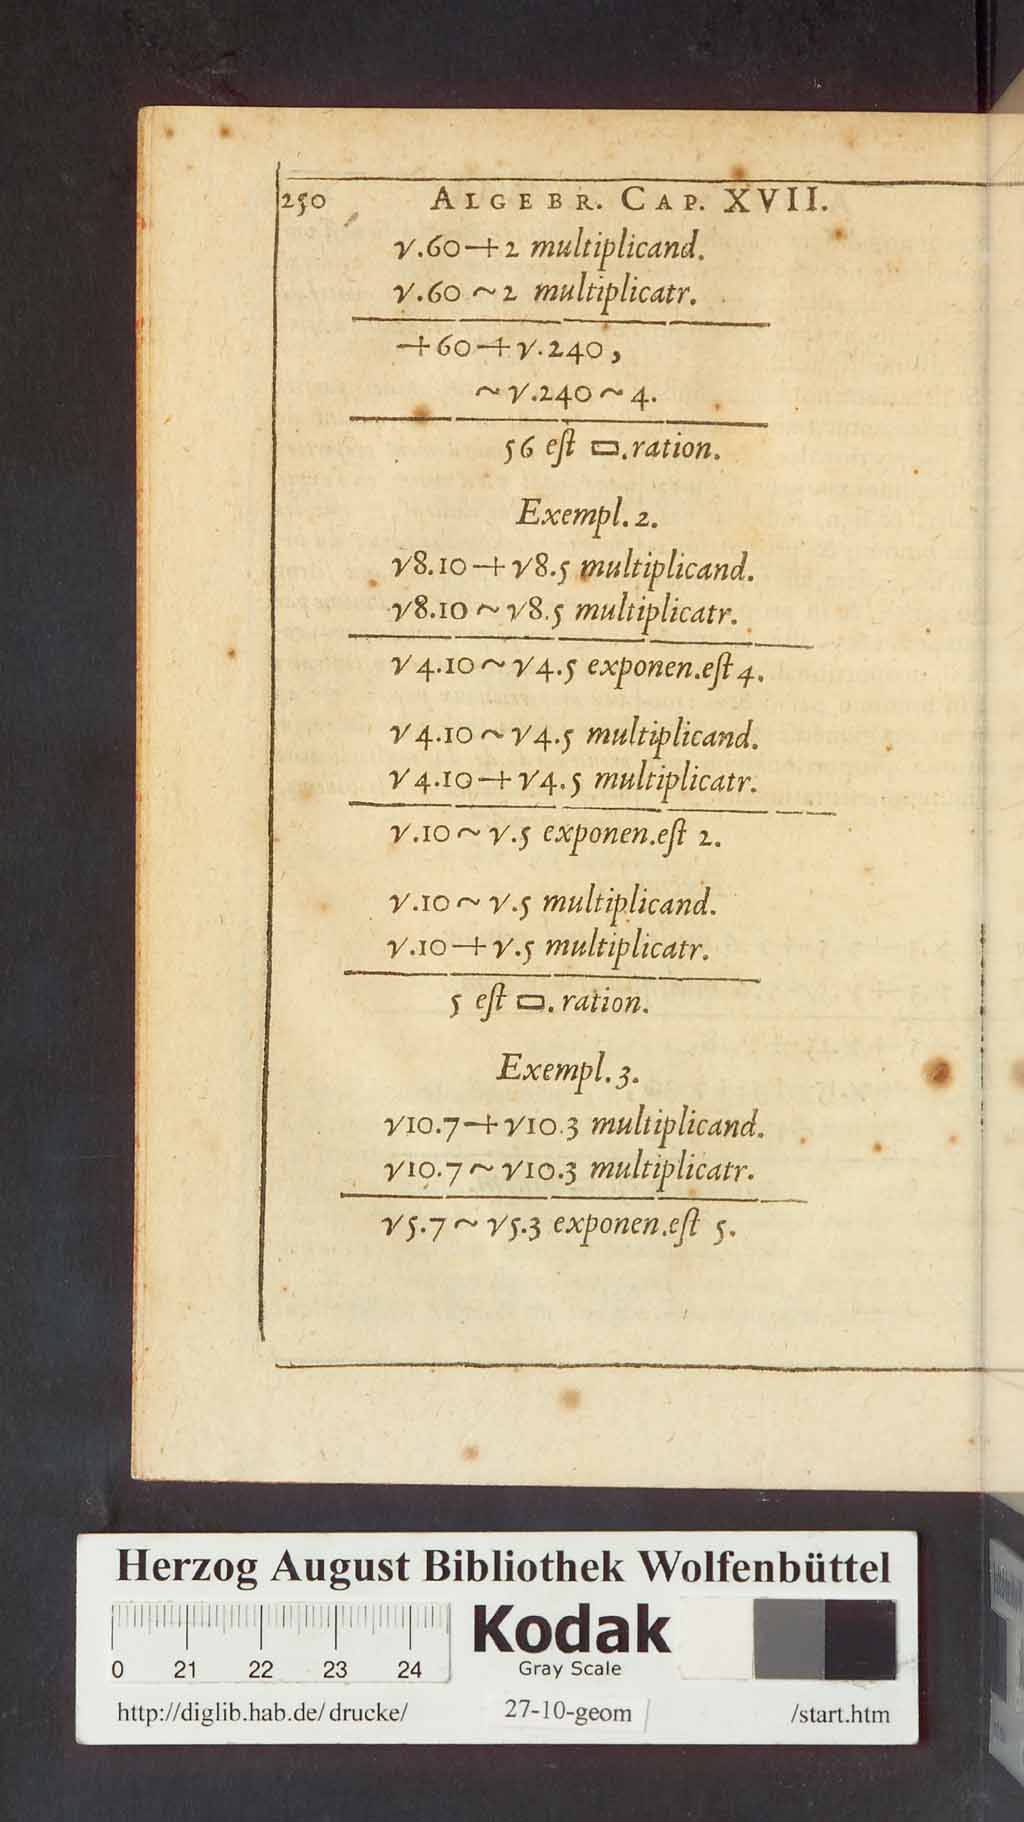 250 ALGEBR. CAP. XVII.
√.60+2 multiplicand.
√.60 ~ 2 multiplicatr.
+60+√.240,
~ √.240 ~ 4.
56 eſt ▭.ration.
Exempl. 2.
√8.10+√8.5 multiplicand.
√8.10 ~ √8.5 multiplicatr.
√4.10 ~ √4.5 exponen.eſt 4.
√4.10 ~ √4.5 multiplicand.
√4.10+√4.5 multiplicatr.
√.10 ~ √.5 exponen.eſt 2.
√.10 ~ √.5 multiplicand.
√.10+√.5 multiplicatr.
5 eſt ▭.ration.
Exempl. 3.
√10.7+√10.3 multiplicand.
√10.7 ~ √10.3 multiplicatr.
√5.7 ~ √5.3 exponen.eſt 5.
Herzog August Bibliothek Wolfenbüttel
0 21 22 23 24
Kodak
Gray Scale
http://diglib.hab.de/drucke/ 27-10-geom /start.htm